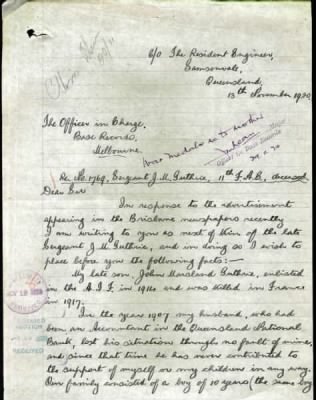 c/o The Resident Engineer,
Samsonvale,
Queensland,
13th November 1920
The Officer in Charge,
Base Records,
Melbourne.
War medals as to
Major
Officer i/c Base Records
Re No 1769, Sergeant J. M. Guthrie, 11th F.A.B., deceased
Dear Sir
In response to the advertisement
appearing in the Brisbane newspapers recently
I am writing to you as next of kin of the late
Sergeant J. M. Guthrie, and in doing so I wish to
place before you the following facts:—
My late son, John Marsland Guthrie, enlisted
in the A.I.F. in 1916 and was killed in France
in 1917.
In the year 1907 my husband, who had
been an Accountant in the Queensland National
Bank, lost his situation through no fault of mine,
and since that time he has never contributed to
the support of myself or my children in any way.
Our family consisted of a boy of 10 years (the same boy
RECEIVED